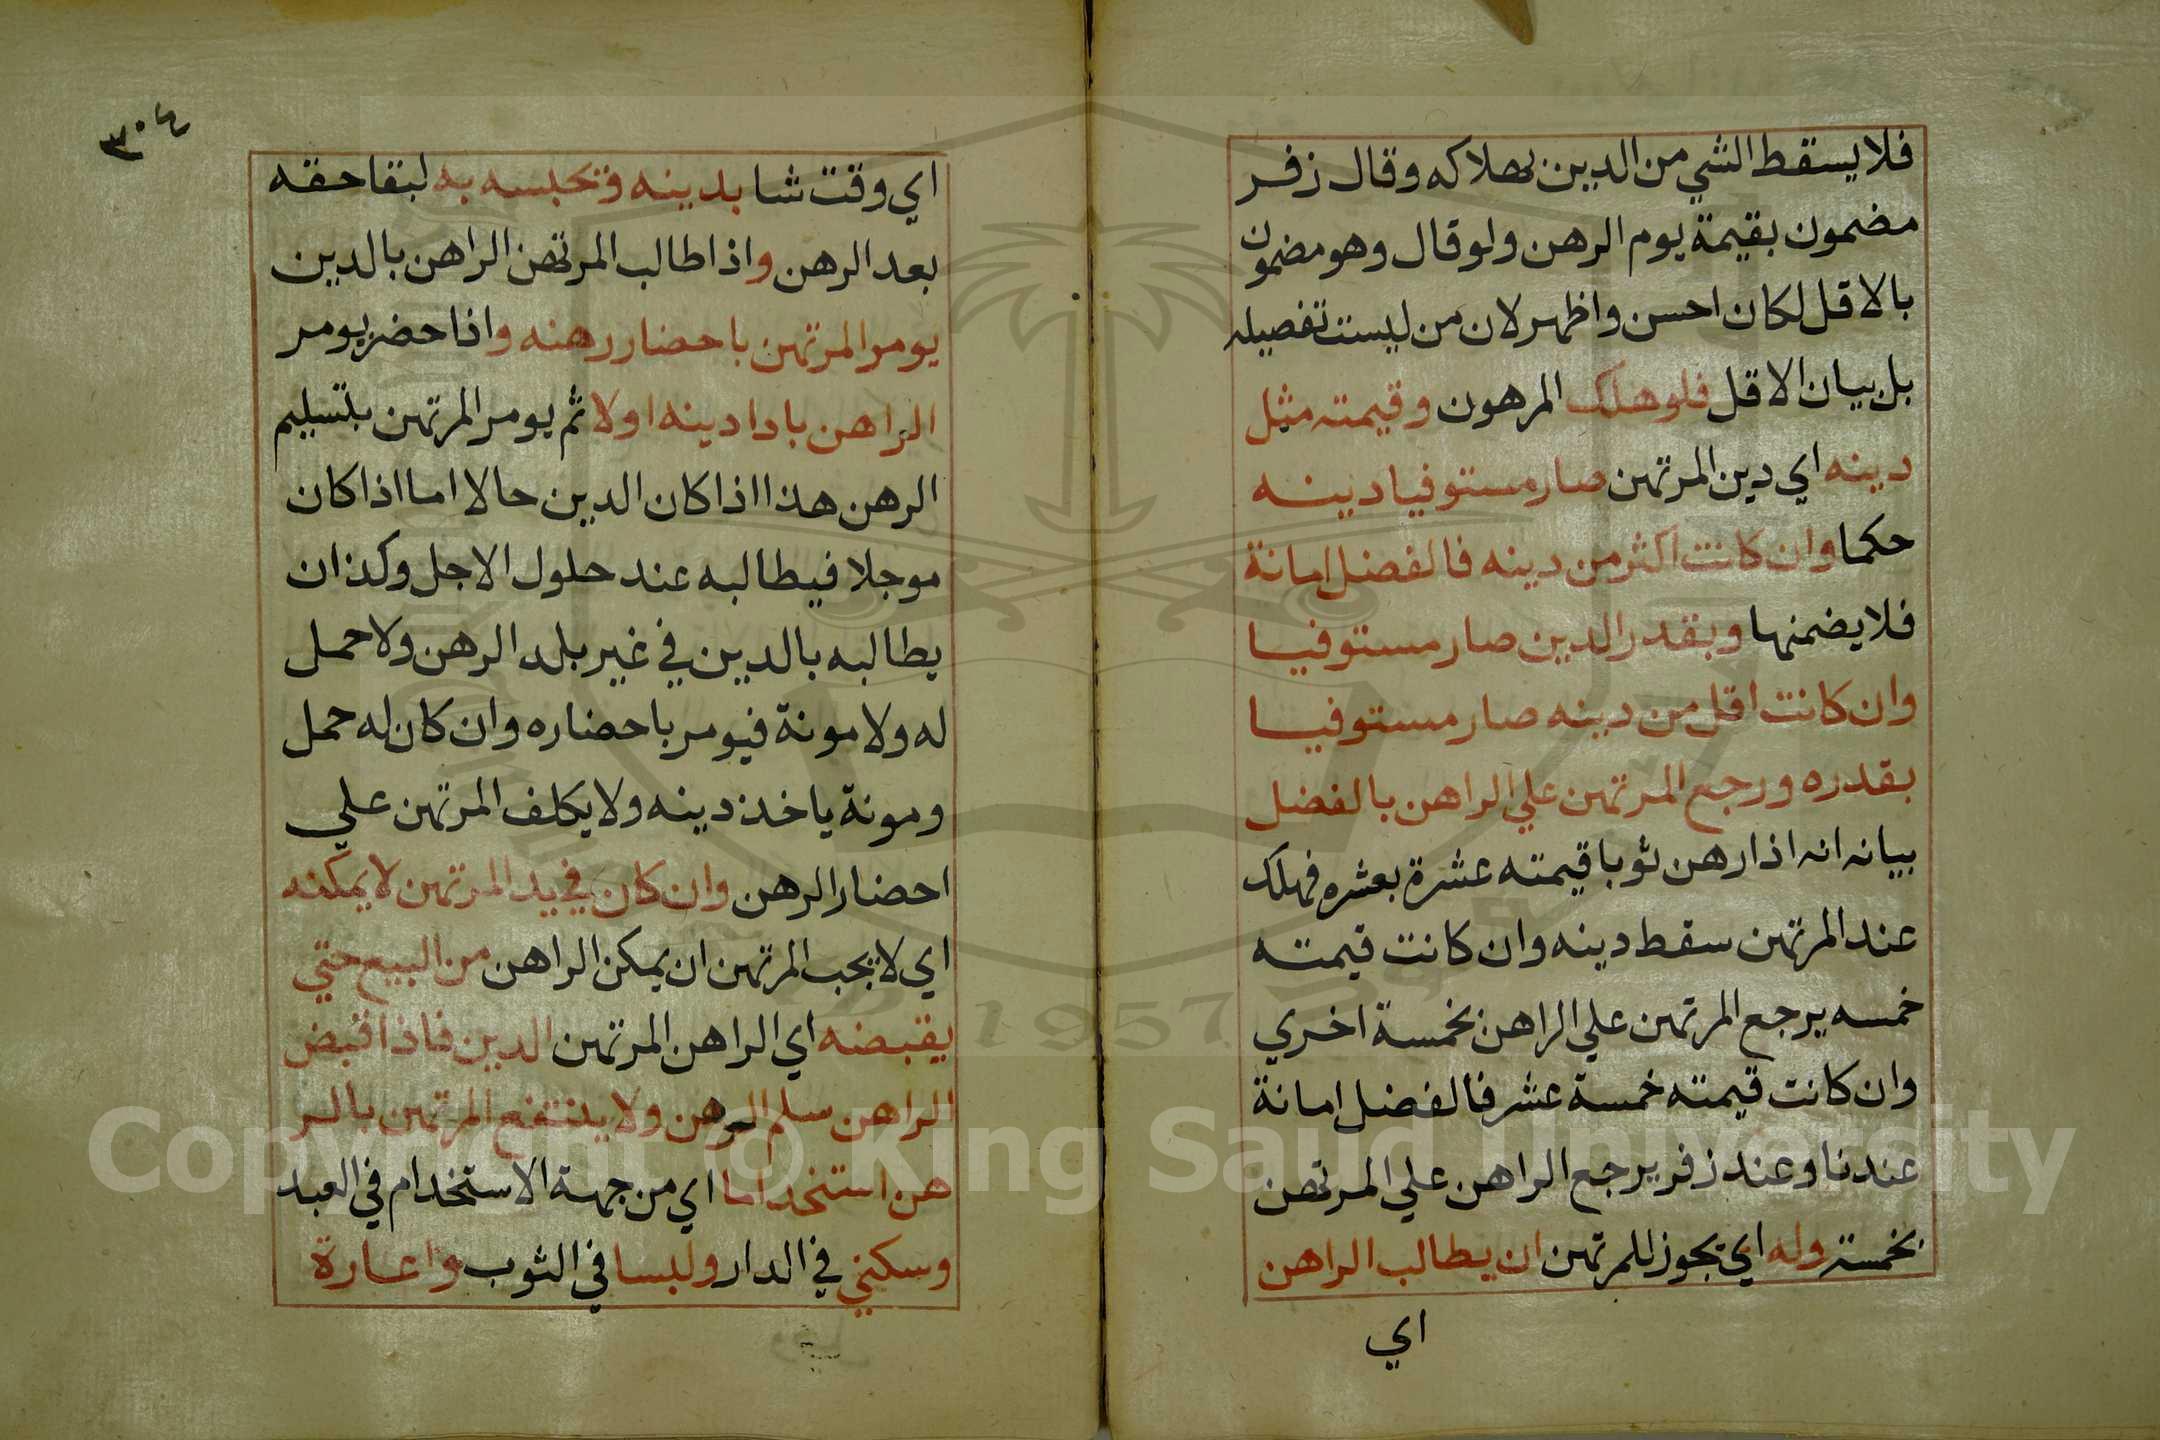 فلا يسقط الشي من الدين بهلاكه وقال زفر
مضمون بقيمة يوم الرهن ولو قال وهو مضمون
بالاقل لكان احسن واظهر لان من ليست تفصيله
بل بيان الاقل فلو هلك المرهون وقيمته مثل
دينه اي دين المرتهن صار مستوفيا دينه
حكما وان كانت اكثر من دينه فالفضل امانة
فلا يضمنها وبقدر الدين صار مستوفيا
وان كانت اقل من دينه صار مستوفيا
بقدره ورجع المرتهن علي الراهن بالفضل
بيانه انه اذا رهن ثوبا قيمته عشرة بعشره فهلك
عند المرتهن سقط دينه وان كانت قيمته
خمسه يرجع المرتهن علي الراهن بخمسة اخري
وان كانت قيمته خمسة عشر فالفضل امانة
عندنا وعند زفر يرجع الراهن علي المرتهن
بخمسته وله اي يجوز للمرتهن ان يطالب الراهن
اي
٣٠٤
اي وقت شا بدينه وتحبسه به لبقا حقه
بعد الرهن واذا طالب المرتهن الراهن بالدين
يومر المرتهن باحضار رهنه واذا حضر يومر
الراهن بادا دينه اولا ثم يومر المرتهن بتسليم
الرهن هذا اذا كان الدين حالا اما اذا كان
موجلا فيطالبه عند حلول الاجل وكذا ان
يطالبه بالدين في غير بلد الرهن ولا حمل
له ولا مونة فيومر باحضاره وان كان له حمل
ومونة ياخذ دينه ولا يكلف المرتهن علي
احضار الرهن وان كان في يد المرتهن لا يمكنه
اي لا يجب المرتهن ان يمكن الراهن من البيع حتي
يقبضه اي الراهن المرتهن الدين فاذا قبض
الراهن سلم الرهن ولا ينتفع المرتهن بالر
هن استخداما اي من جهة الاستخدام في العبد
وسكني في الدار ولبسا في الثوب واعارة
1957
Copyright © King Saud University